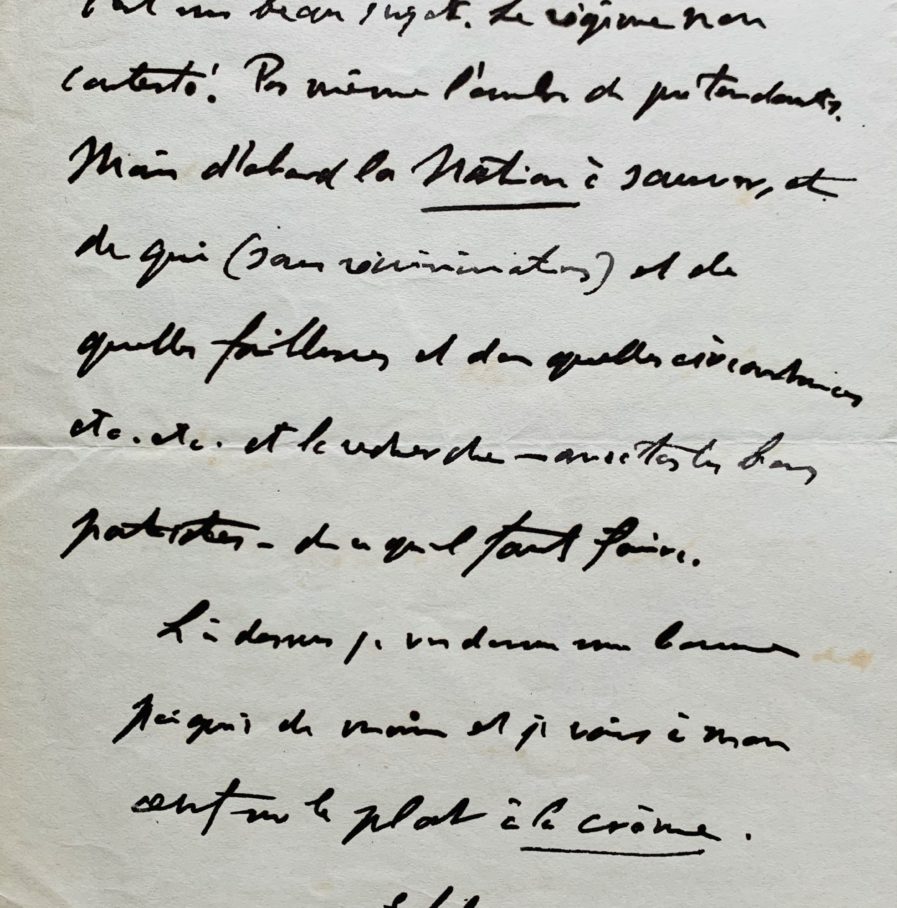 un beau sujet. Le régime non
contesté! Pas même l'ombre de prétendants.
Mais d'abord la Nation à sauver, et
de qui (sans récriminations) et de
quelles faiblesses et dans quelles circonstances
etc. etc. et la recherche – avec tous les bons
patriotes – de ce qu'il faut faire.
Là dessus je vous donne une bonne
poignée de main et je vais à mon
œuf sur le plat à la crème.